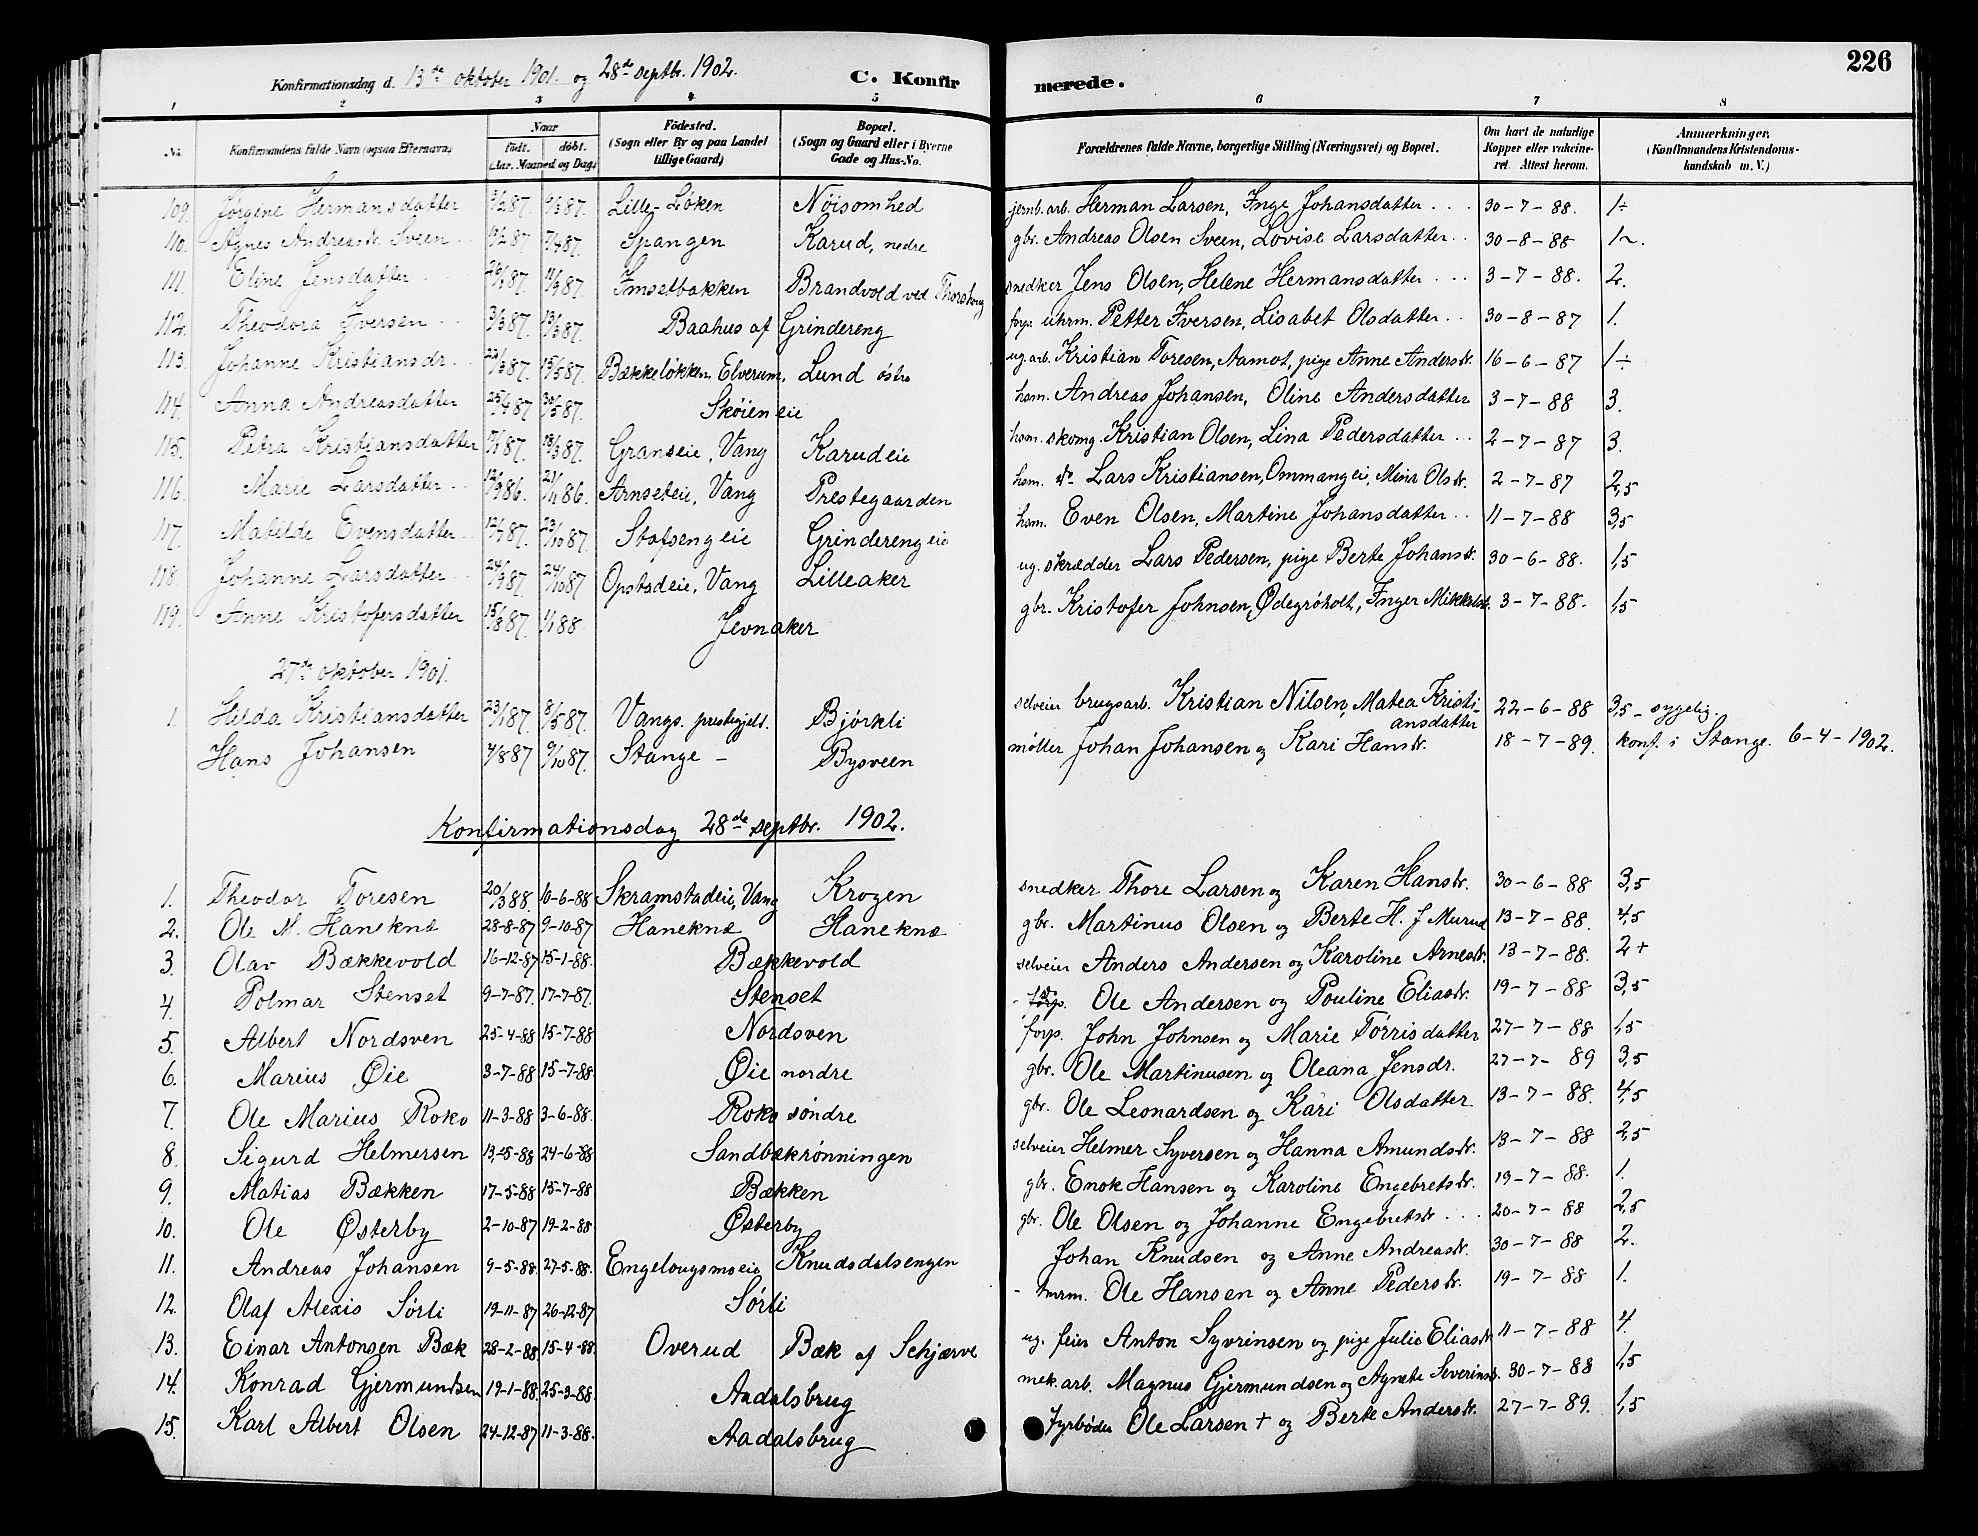 226
Konfirmationsdag d. 13de oktober 1901. og 28de septbr. 1902. C. Konfirmerede.
1 2 3 4 5 6 7 8
No. Konfirmandens fulde Navn (ogsaa Efternavn) Naar födt. döbt. (Aar, Maaned og Dag) Födested. (Sogn eller By og paa Landet tillige Gaard) Bopæl. (Sogn og Gaard eller i Byerne Gade og Hus-No. Forældrenes fulde Navne, borgerlige Stilling (Næringsvei) og Bopæl. Om havt de naturlige Kopper eller vakcineret. Attest herom. Anmærkninger, (Konfirmandens Kristendomskundskab m. V.)
109. Jørgine Hermansdatter 87. 87. Lille-Løken Nöisomhed jernb. arb. Herman Larsen, Inge Johansdatter 30-7-88. 1÷
110. Agnes Andreasdr. Sveen 87 87. Spangen Karud, nedre gbr. Andreas Olsen Sveen, Lovise Larsdatter 30-8-88 1~.
111. Eline Jensdatter 87. 87. Imsetbakken Brandvold ved Thorsborg snedker Jens Olsen, Helene Hermansdatter 3-7-88. 2.
112. Theodora Iversen 3/3 87. 13/3 87. Baahus af Grindereng forp. uhrm. Petter Iversen, Lisabet Olsdatter 30-8-87 1.
113. Johanne Kristiansdr. 22/3 87. 15/5 87. Bækkeløkken, Elverum, Lund østre ug. arb. Kristian Toresen, Aamot, pige Anne Andersdr. 16-6-87 1÷
114. Anna Andreasdatter 25/4 87 30/5 87. Skøieneie hsm. Andreas Johansen, Oline Andersdatter 3-7-88 3.
115. Petra Kristiansdatter 87. 13/3 87. Granseie, Vang Karudeie hsm. skomg. Kristian Olsen, Lina Pedersdatter 2-7-87 3.
116. Marie Larsdatter 12/9 86. 21/11 86. Arnseteie, Vang Prestegaarden hsm. do Lars Kristiansen, Ommangei, Mina Olsdr. 2-7-87 2,5
117. Matilde Evensdatter 12/9 87. 23/10 87. Stafsengeie Grinderengeie hsm. Even Olsen, Martine Johansdatter 11-7-88 3,5
118. Johanne Larsdatter 24/9 87. 24/10 87 Opstadeie, Vang Lilleaker ug. skrædder Lars Pedersen, pige Berte Johansdr. 30-6-88. 1,5
119. Anne Kristofersdatter 15/8 87. 1/1 88. Jevnaker gbr. Kristofer Johnsen, Ødegröholt, Inger Mikkelsdr. 3-7-88. 1,5
27de oktober 1901.
1. Hilda Kristiansdatter 23/1 87. 8/5 87. Vangs. prestegjeld. Bjørkli selveier brugsarb. Kristian Nilsen, Matea Kristiansdatter 22-6-88 3,5 - sygelig.
Hans Johansen 4/8 87 9/10 87. Stange - Bysveen møller Johan Johansen og Kari Hansdr. 18-7-89. konf. i Stange. 6-4-1902.
Konfirmationsdag 28de septbr. 1902.
1. Theodor Toresen 20/3 88. 10-6-88 Skramstadeie, Vang Krogen snedker Thore Larsen og Karen Hansdr. 30-6-88 3,5
2. Ole M. Haneknæ 28-8-87 9-10-87 Haneknæ Haneknæ gbr. Martinus Olsen og Berte H. f Murud 13-7-88. 4,5
3. Olav Bækkevold 16-12-87 15-1-88. Bækkevold selveier Anders Andersen og Karoline Arnesdr. 13-7-88. 2+
4. Polmar Stenset 9-7-87. 17-7-87. Stenset Ole Andersen og Pouline Eliasdr. 19-7-88 3,5
5. Albert Nordsven 25-4-88 15-7-88 Nordsven forp. John Johnsen og Marie Tørrisdatter 27-7-88 1,5
6. Marius Øie 3-7-88 15-7-88. Øie nordre gbr. Ole Martinusen og Oleana Jensdr. 27-7-89 3,5
7. Ole Marius Roko 11-3-88 3-6-88. Roko søndre gbr. Ole Leonardsen og Kari Olsdatter 13-7-88. 4,5
8. Sigurd Helmersen 13-5-88 24-6-88 Sandbækrønningen selveier Helmer Syversen og Hanna Amundsdr. 13-7-88 2,5
9. Matias Bækken 17-5-88 15-7-88 Bækken gbr. Enok Hansen og Karoline Engebretsdr. 19-7-88. 1.
10. Ole Østerby 2-10-87 19-2-88 Østerby gbr. Ole Olsen og Johanne Engebretsdr. 20-7-88 2,5
11. Andreas Johansen 9-5-88. 27-5-88. Engelougsmoeie Knudsdalsengen Johan Knudsen og Anne Andreasdr. 30-7-88 2.
12. Olaf Alexis Sørli 19-11-87 26-12-87 Sørli - tmrm. Ole Hansen og Anne Pedersdr. 19-7-88 1.
13. Einar Antonsen Bæk 28-2-88. 15-4-88. Overud Bæk af Schjærve ug. feier Anton Syvrinsen og pige Julie Eliasdr. 11-7-88 4.
14. Konrad Gjermundsen 19-1-88. 25-3-88. Aadalsbrug mek. arb. Magnus Gjermundsen og Agnete Severinsdr. 30-7-88 1,5
15. Karl Albert Olsen 24-12-87 11-3-88. Aadalsbrug Fyrbøder Ole Larsen + og Berte Andersdr. 27-7-89. 1,5